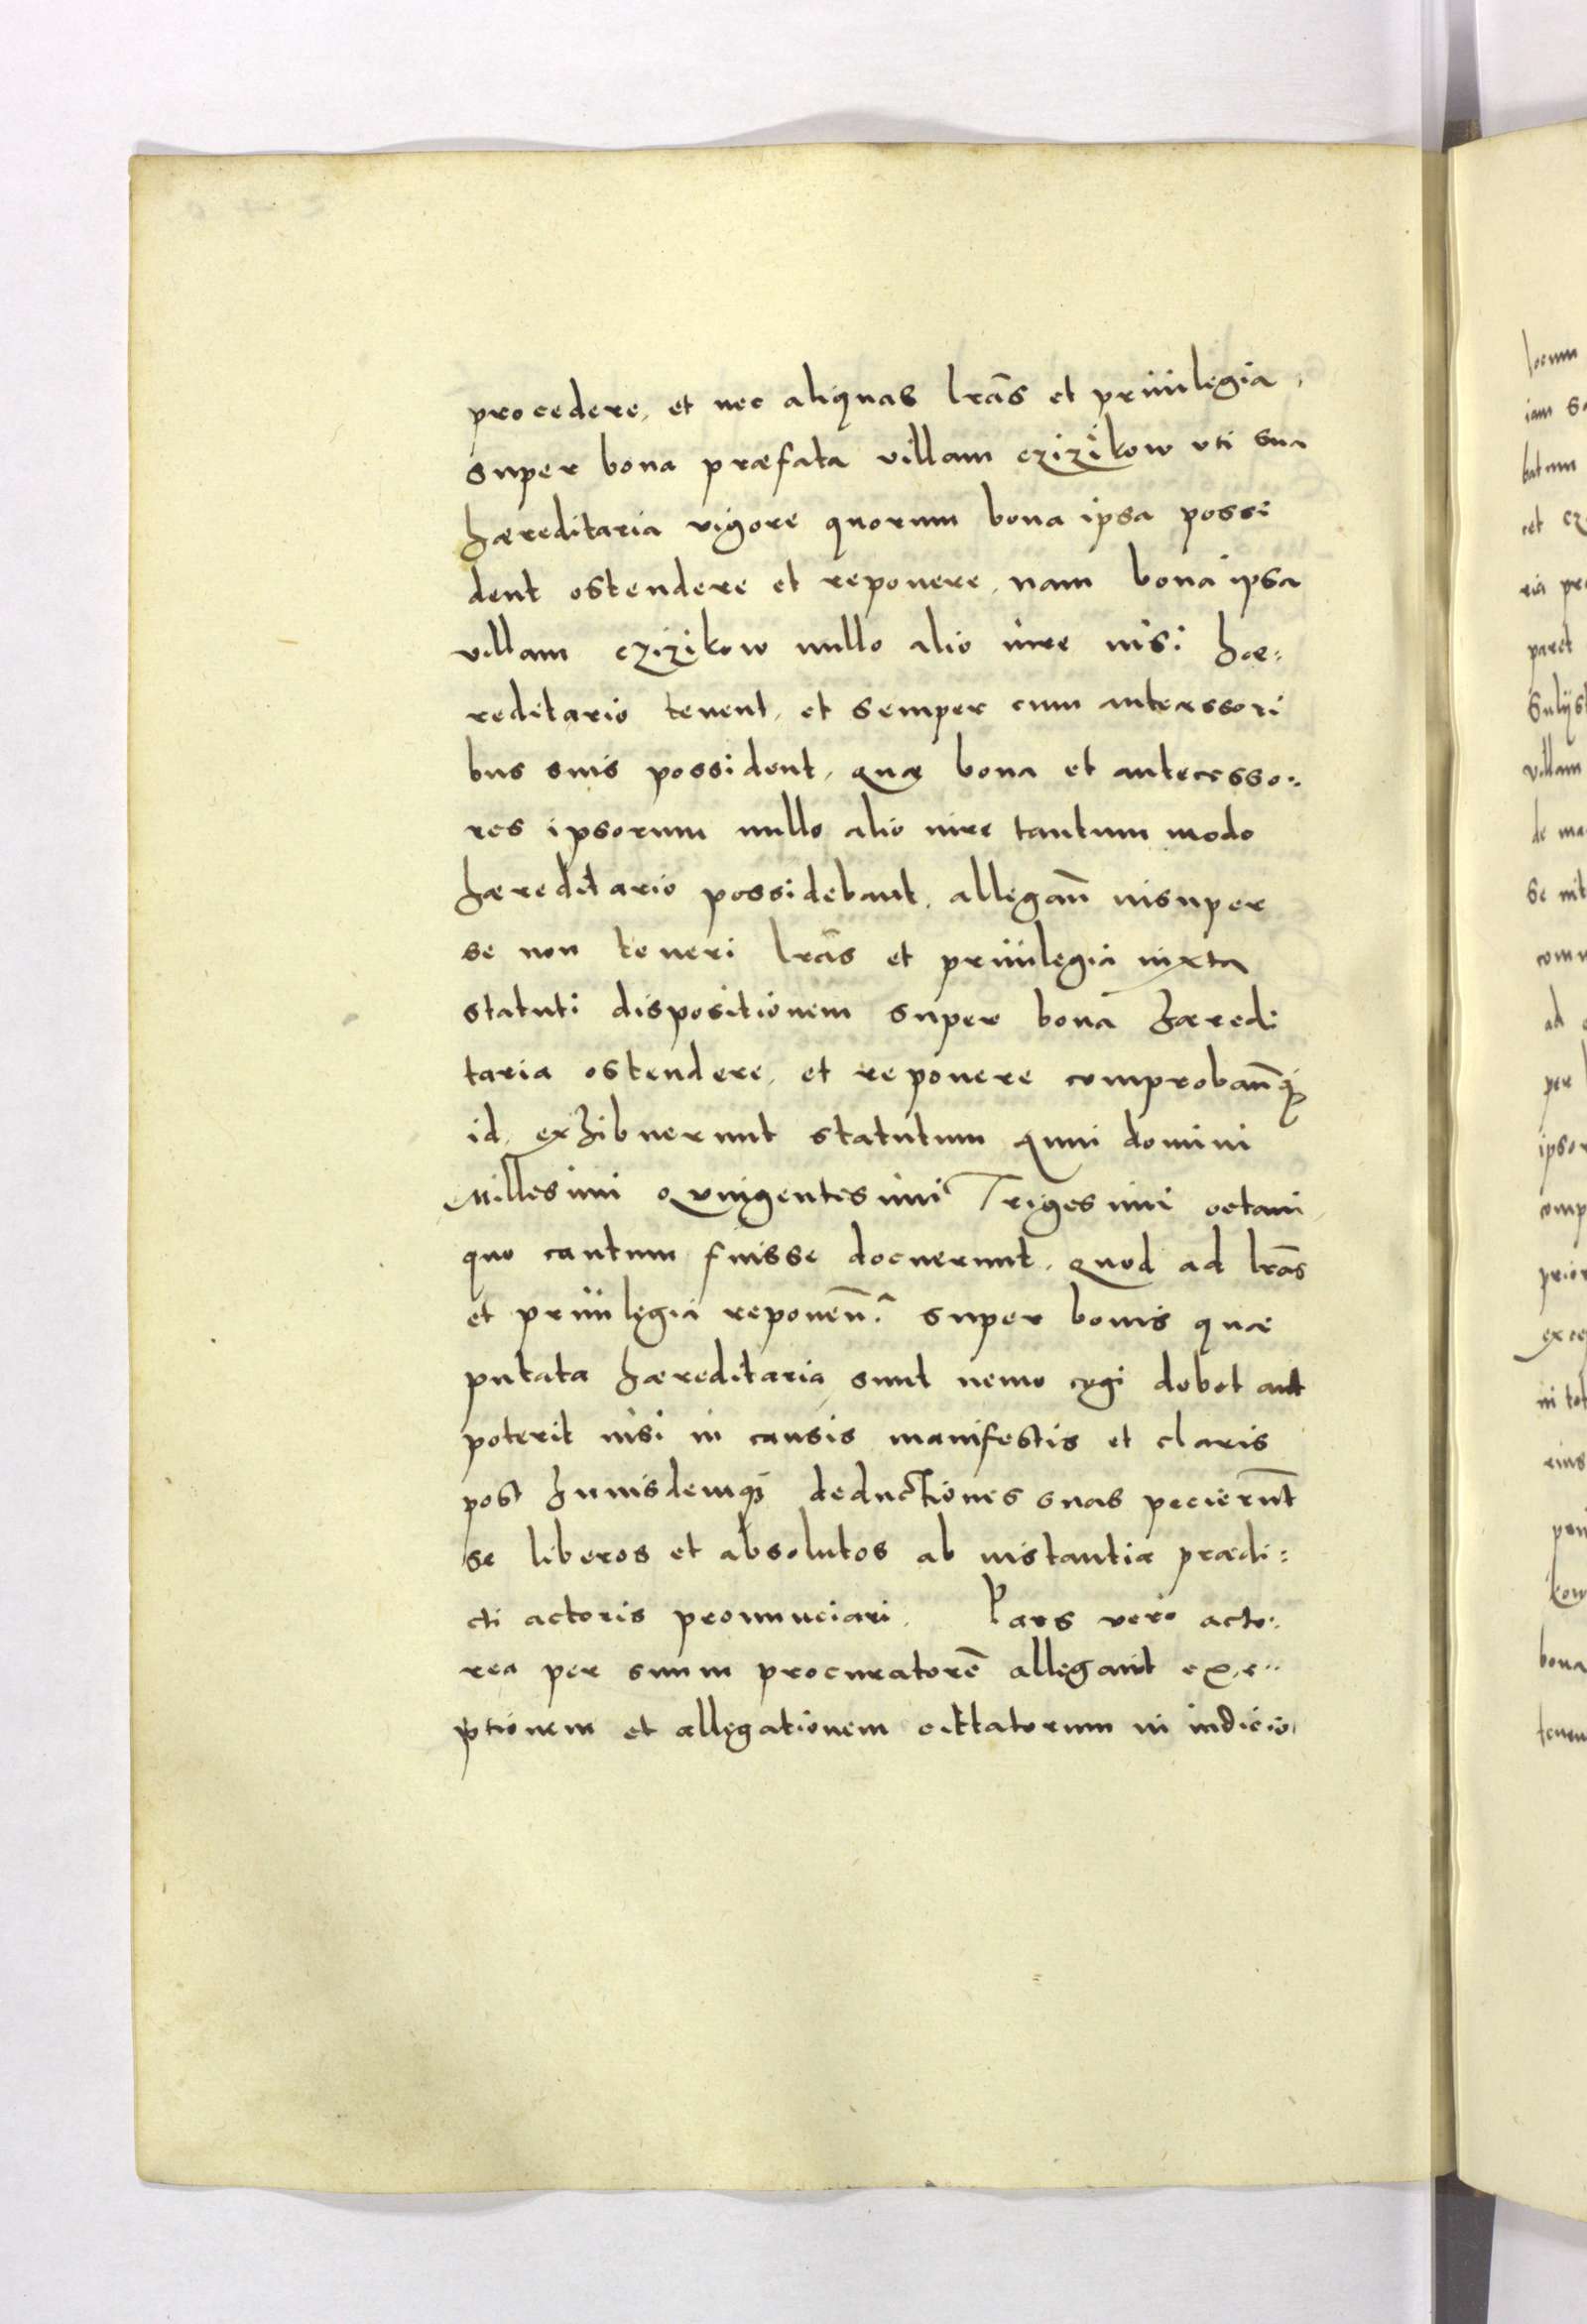 procedere, et nec aliquas lrãs et priuilegia,
super bona præfata villam czizikow vti sua
hæreditaria vigore quorum bona ipsa possi
dent ostendere et reponere, nam bona ipsa
villam czizikow nullo alio iure nisi hæ:
reditario tenent, et semper cum antecessori
bus suis possident, quæ bona et antecesso:
res ipsorum nullo alio iure tantum modo
hæreditario possidebant, allegañ insuper
se non teneri lrãs et priuilegia iuxta
statuti dispositionem super bona hæredi
taria ostendere, et reponere comprobañq;
id, exhibuerunt statutum Anni domini
Millesimi Quingentesimi Trigesimi octaui,
quo cautum fuisse docuerunt, quod ad lrãs
et priuilegia reponeñ: super bonis quæ
putata hæreditaria sunt nemo cogi debet aut
poterit nisi in causis manifestis et claris
post huiusdemq; deductiones suas pecierunt
se liberos et absolutos ab instantia prædi:
cti actoris pronunciari. Pars vero acto:
rea per suum procuratorẽ allegauit exce:
ptionem et allegationem cittatorum in iudicio,
locum
batum
ria pr
paret
villam
de ma
ad
per
ipso
comp
prior
in tot
eius
kow
bona
tenen